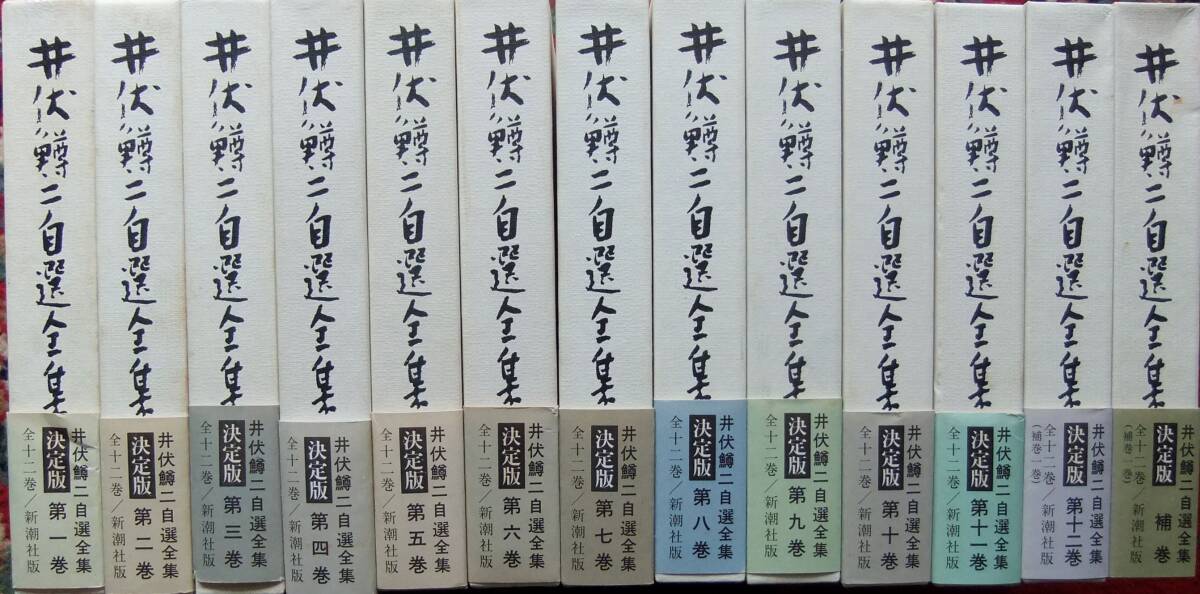 井伏鱒二自選全集
井伏鱒二自選全集
決定版 第一巻
全十二巻/新潮社版
井伏鱒二自選全集
井伏鱒二自選全集
決定版 第二巻
全十二巻/新潮社版
井伏鱒二自選全集
井伏鱒二自選全集
決定版 第三巻
全十二巻/新潮社版
井伏鱒二自選全集
井伏鱒二自選全集
決定版 第四巻
全十二巻/新潮社版
井伏鱒二自選全集
井伏鱒二自選全集
決定版 第五巻
全十二巻/新潮社版
井伏鱒二自選全集
井伏鱒二自選全集
決定版 第六巻
全十二巻/新潮社版
井伏鱒二自選全集
井伏鱒二自選全集
決定版 第七巻
全十二巻/新潮社版
井伏鱒二自選全集
井伏鱒二自選全集
決定版 第八巻
全十二巻/新潮社版
井伏鱒二自選全集
井伏鱒二自選全集
決定版 第九巻
全十二巻/新潮社版
井伏鱒二自選全集
井伏鱒二自選全集
決定版 第十巻
全十二巻/新潮社版
井伏鱒二自選全集
井伏鱒二自選全集
決定版 第十一巻
全十二巻/新潮社版
井伏鱒二自選全集
井伏鱒二自選全集
決定版 第十二巻
全十二巻/新潮社版
(補巻一巻)
井伏鱒二自選全集
井伏鱒二自選全集
決定版 補巻
全十二巻/新潮社版
(補巻一巻)